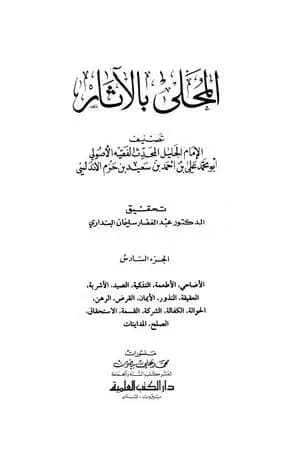 المحلى بالآثار
تصنيف
الإمام الجليل المحدث الفقيه الأصولي
أبو محمد علي بن أحمد بن سعيد بن حزم الأندلسي
تحقيق
الدكتور عبد الغفار سليمان البنداري
الجزء السادس
الأضاحي، الأطعمة، التذكية، الصيد، الأشربة،
العقيقة، النذور، الأيمان، القرض، الرهن،
الحوالة، الكفالة، الشركة، القسمة، الاستحقاق،
الصلح، المداينات
منشورات
محمد علي بيضون
لنشر كتب السنة والجماعة
دار الكتب العلمية
بيروت - لبنان